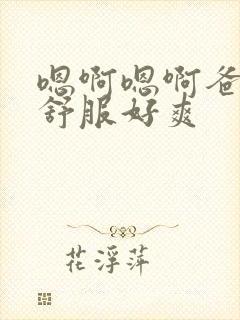 嗯啊嗯啊爸
舒服好爽
花浮萍